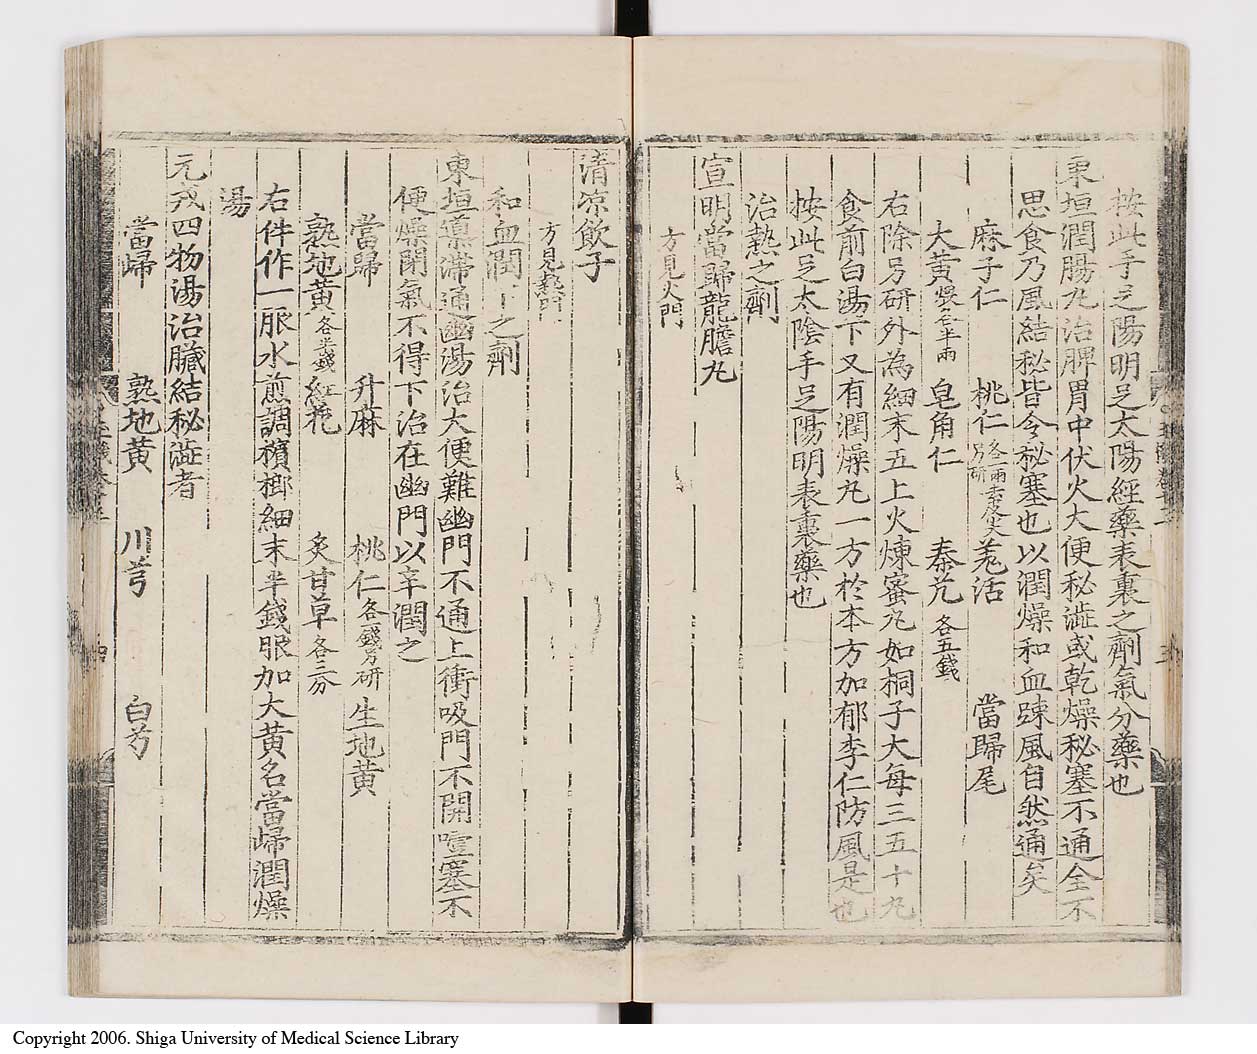 按此手足陽明足太陽經藥表裏之劑氣分藥也
東垣潤腸丸治脾胃中伏火大便秘澁或乾燥秘塞不通全不
思食乃風結秘皆令秘塞也以潤燥和血踈風自然通矣
麻子仁 桃仁 各一兩去皮尖 另研 羗活 當歸尾
大黃 煨各半兩 皂角仁 秦艽 各五錢
右除另研外為細末五上火煉蜜丸如桐子大每三五十丸
食前白湯下又有潤燥丸一方於本方加郁李仁防風是也
按此足太陰手足陽明表裏藥也
治熱之劑
宣明當歸龍膽丸
方見火門
清凉飲子
方見熱門
和血潤下之劑
東垣導滯通幽湯治大便難幽門不通上衝吸門不開噎塞不
便燥閉氣不得下治在幽門以辛潤之
當歸 升麻 桃仁 各一錢另研 生地黃
熟地黃 各半錢 紅花 炙甘草 各三分
右件作一服水煎調檳榔細末半錢服加大黃名當歸潤燥
湯
元戎四物湯治臟結秘澁者
當歸 熟地黃 川芎 白芍
Copyright 2006. Shiga University of Medical Science Library